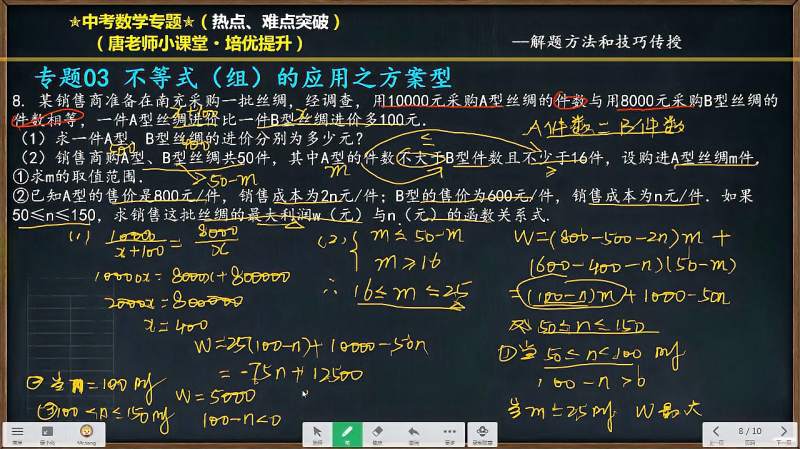 ★中考数学专题★（热点、难点突破）
（唐老师小课堂·培优提升）
—解题方法和技巧传授
专题03 不等式（组）的应用之方案型
8. 某销售商准备在南充采购一批丝绸，经调查，用10000元采购A型丝绸的件数与用8000元采购B型丝绸的
件数相等，一件A型丝绸进价比一件B型丝绸进价多100元.
x+100
x
A件数=B件数
（1）求一件A型、B型丝绸的进价分别为多少元？
500
400
≤
（2）销售商购A型、B型丝绸共50件，其中A型的件数不大于B型件数且不少于16件，设购进A型丝绸m件.
m
≥
①求m的取值范围.
50-m
②已知A型的售价是800元/件，销售成本为2n元/件；B型的售价为600元/件，销售成本为n元/件．如果
50≤n≤150，求销售这批丝绸的最大利润w（元）与n（元）的函数关系式.
(1) 10000/x+100 = 8000/x
10000x=8000x+800000
2000x=800000
x=400
(2) { m≤50-m
m≥16
∴ 16≤m≤25
W=(800-500-2n)m+
(600-400-n)(50-m)
=(100-n)m+10000-50n
又50≤n≤150
①当50≤n<100时
100-n>0
当m=25时 W最大
W=25(100-n)+10000-50n
=-75n+12500
②当n=100时
W=5000
③100<n≤150时
100-n<0
8 / 10
上一页
页码
下一页